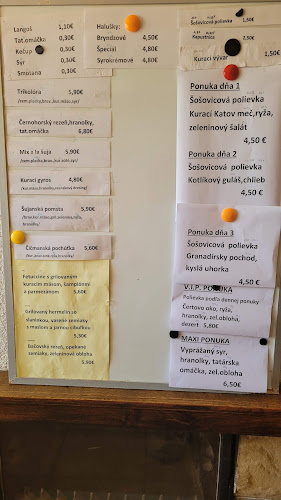 Langoš 1,10€
Tat.omáčka 0,30€
Kečup 0,30€
Syr 0,30€
Smotana 0,30€
Halušky:
Bryndzové 4,50€
Špeciál 4,80€
Syrokrémové 4,80€
Trikolóra 5,90€
Černohorský rezeň,hranolky,
tat.omáčka 6,80€
Mix a la šuja 5,90€
Kuracì gyros 4,80€
Šujanská pomsta 5,90€
Čičmanská pochúťka 5,60€
Fetuccine s grilovaným
kuracím mäsom, šampiónmi
a parmezánom 5,60€
Grilovaný hermelín so
slaninkou, varené zemiaky
s maslom a jarnou cibuľkou
5,50€
Bačovský rezeň, opekané
zemiaky, zeleninová obloha
5,90€
Šošovicová polievka 1,50€
Kapustnica 2,50€
Kurací vývar 1,50€
Ponuka dňa 1
Šošovicová polievka
Kurací Katov meč,ryža,
zeleninový šalát
4,50 €
Ponuka dňa 2
Šošovicová polievka
Kotlíkový guláš,chlieb
4,50 €
Ponuka dňa 3
Šošovicová polievka
Granadírsky pochod,
kyslá uhorka
4,50 €
V.I.P. PONUKA
Polievka podľa dennej ponuky
Čertovo oko, ryža,
hranolky, zel.obloha,
dezert 5,80€
MAXI PONUKA
Vyprážaný syr,
hranolky, tatárska
omáčka, zel.obloha
6,50€